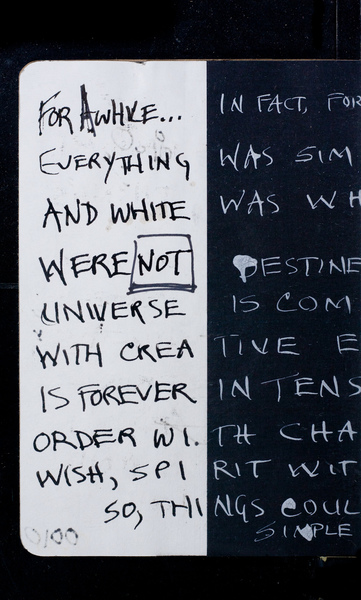 FOR AWHILE... IN FACT, FOR
EVERYTHING WAS SIM
AND WHITE WAS WH
WERE NOT DESTINE
UNIVERSE IS COM
WITH CREA TIVE E
IS FOREVER IN TENS
ORDER WI. TH CHA
WISH, SPI RIT WIT
SO, THI NGS COUL
SIMPLE